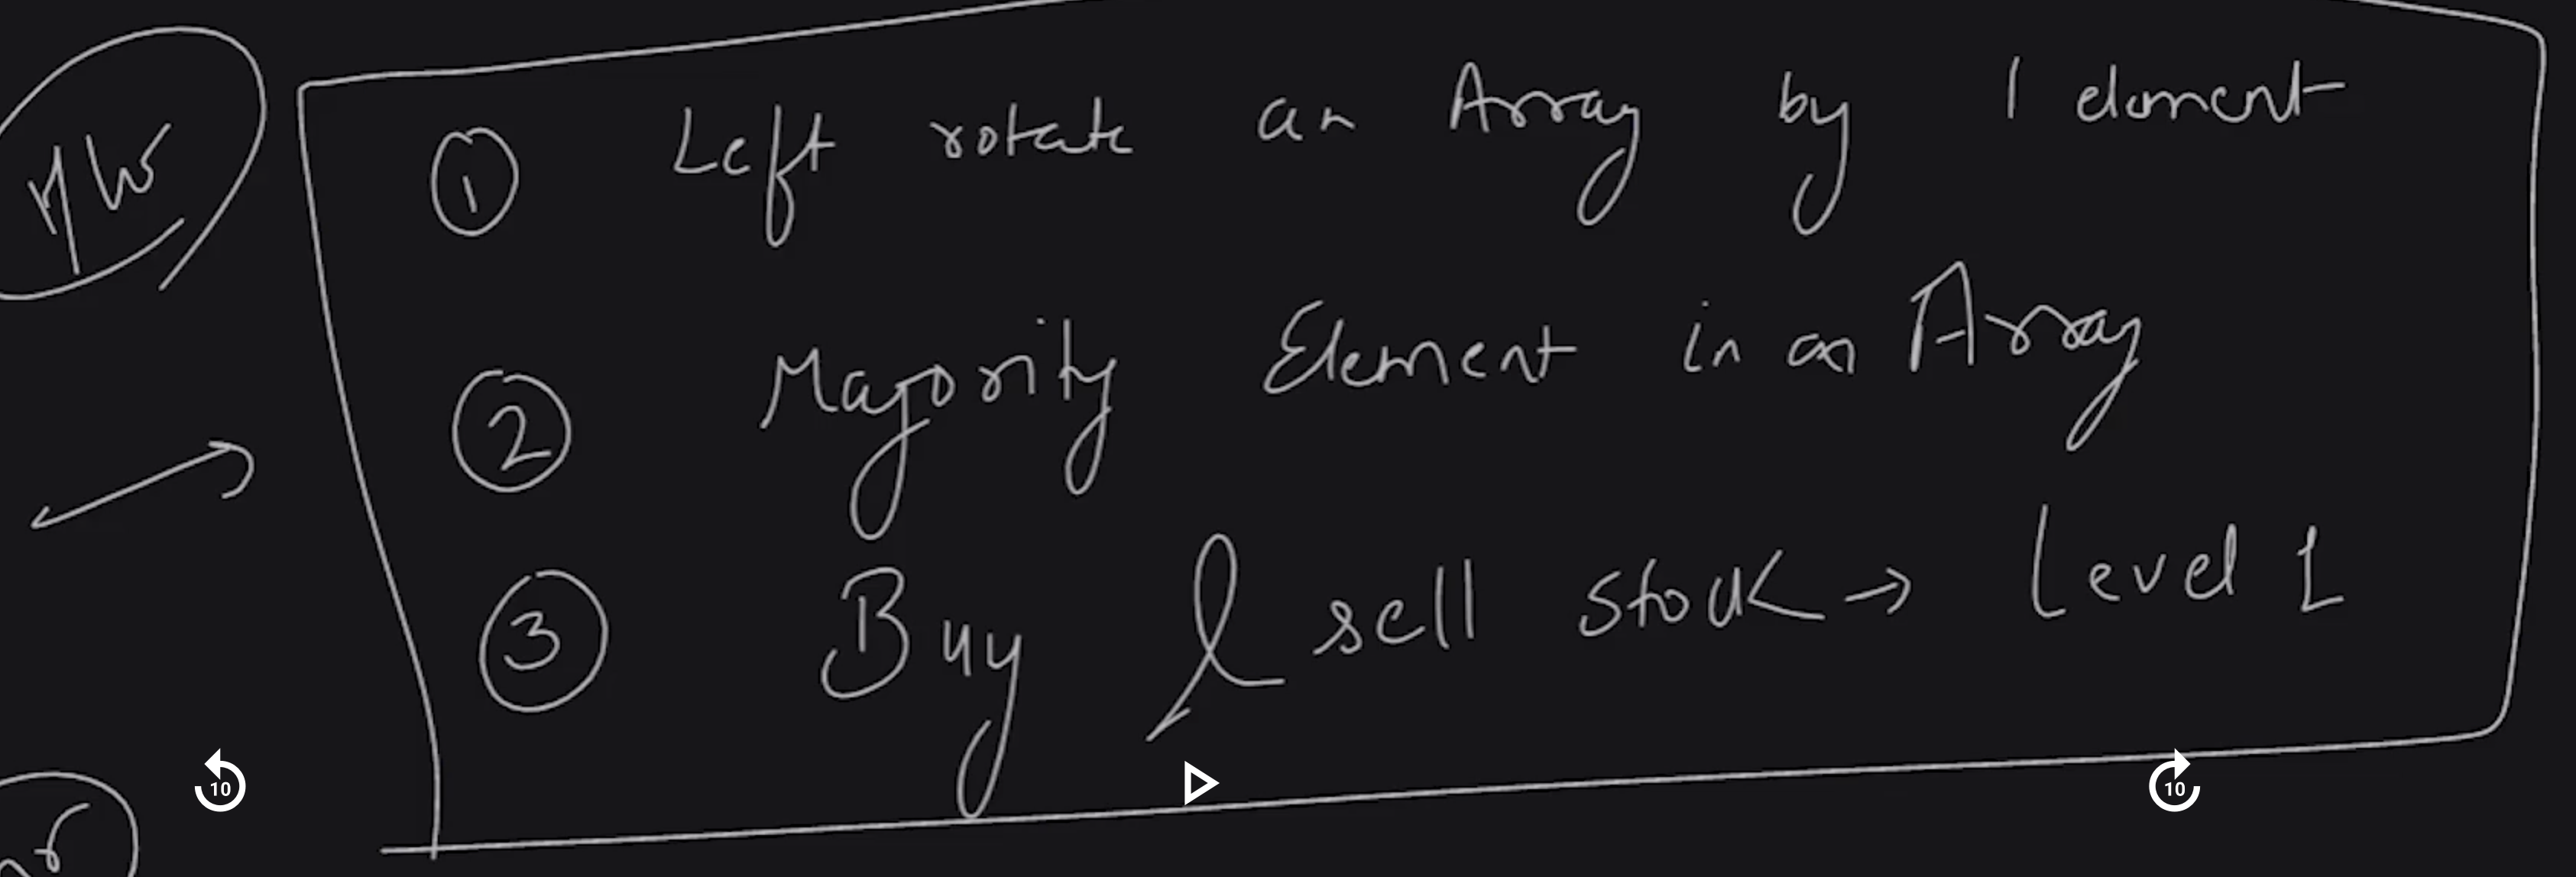 HW
① Left rotate an Array by 1 element
② Majority Element in an Array
③ Buy & sell stock → Level 1
10
10